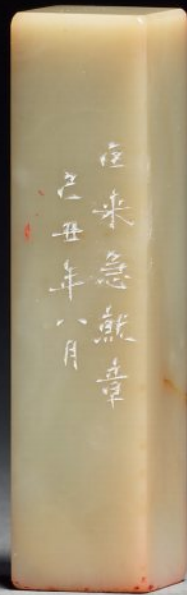 来急就章
己丑年八月